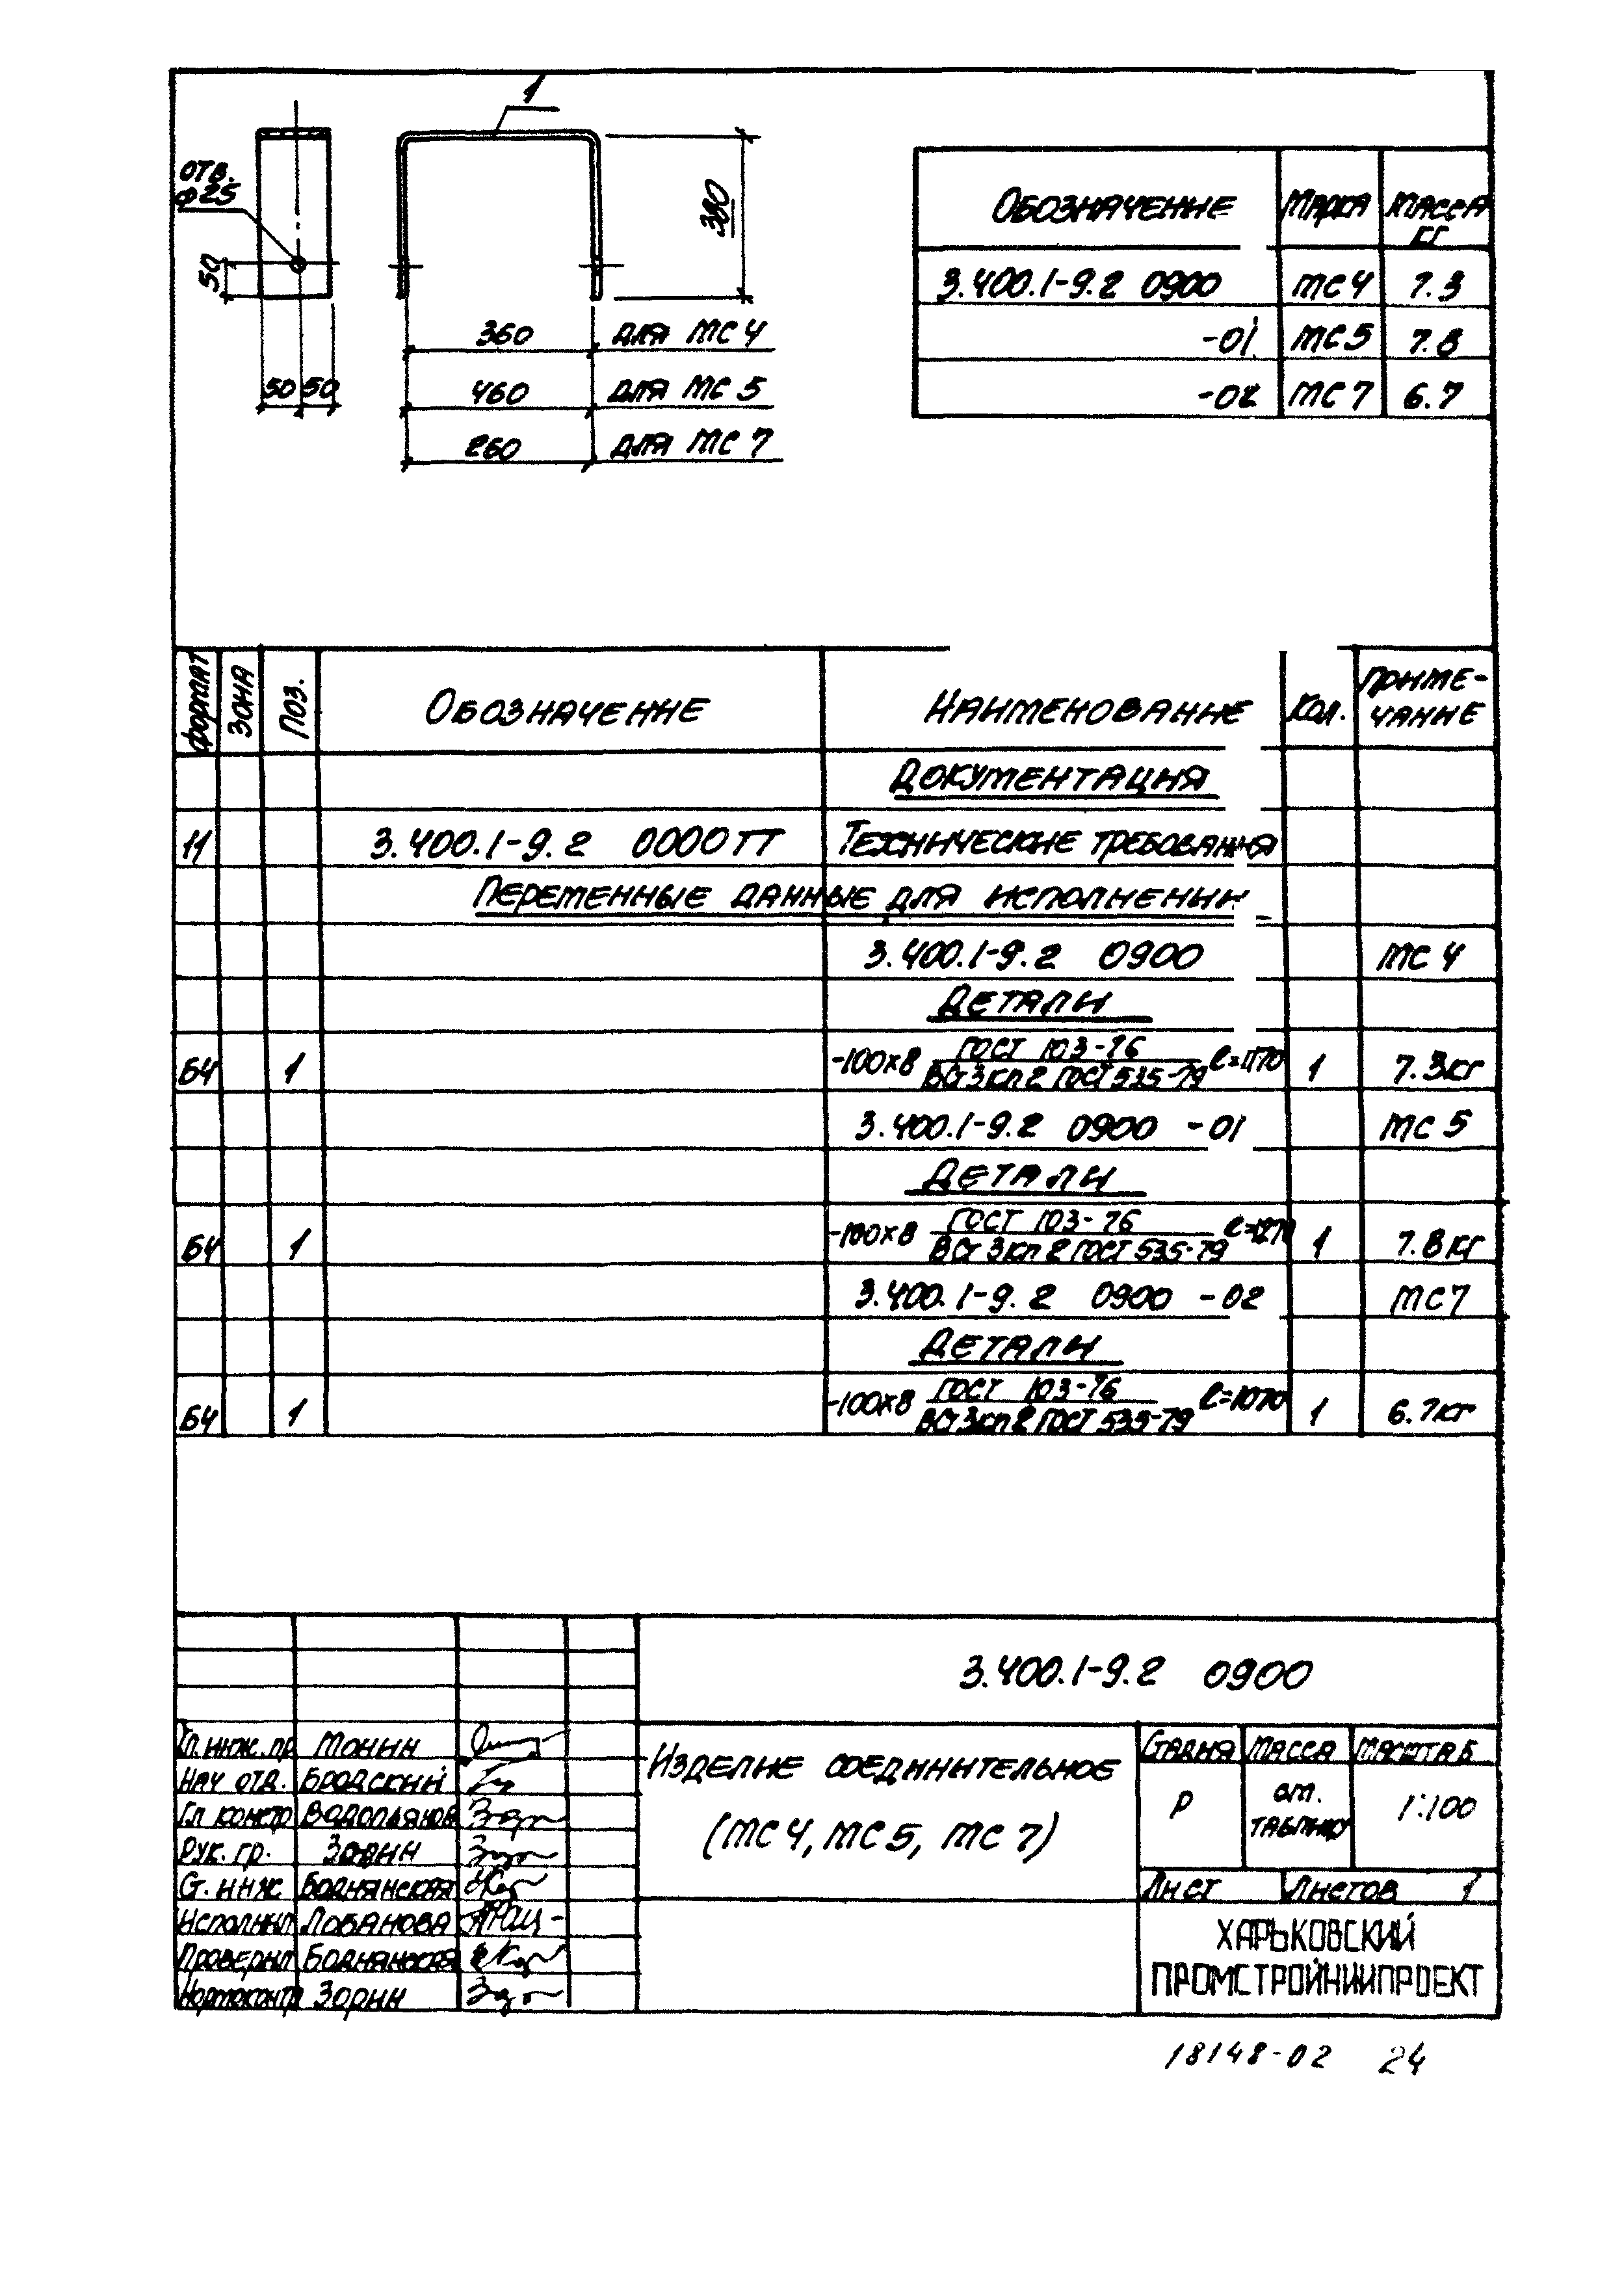 1
отв.
ф25
50
50 50
380
360 для МС 4
460 для МС 5
260 для МС 7
Обозначение Марка Масса кг
3.400.1-9.2 0900 МС 4 7.3
-01 МС 5 7.8
-02 МС 7 6.7
Формат Зона Поз. Обозначение Наименование Кол. Приме-
чание
Документация
11 3.400.1-9.2 0000ТТ Технические требования
Переменные данные для исполнений
3.400.1-9.2 0900 МС 4
Детали
Б4 1 -100х8 ГОСТ 103-76 ℓ=1170 1 7.3кг
ВСт3кп2 ГОСТ 535-79
3.400.1-9.2 0900 -01 МС 5
Детали
Б4 1 -100х8 ГОСТ 103-76 ℓ=1270 1 7.8кг
ВСт3кп2 ГОСТ 535-79
3.400.1-9.2 0900 -02 МС 7
Детали
Б4 1 -100х8 ГОСТ 103-76 ℓ=1070 1 6.7кг
ВСт3кп2 ГОСТ 535-79
3.400.1-9.2 0900
Гл. инж. пр Монин
Нач отд. Бродский
Гл констр Водопьянов
Рук. гр. Зорин
Ст. инж Боднянская
Исполнил Лобанова
Проверил Боднянская
Нормоконтр Зорин
Изделие соединительное
(МС 4, МС 5, МС 7)
Стадия Масса Масштаб
Р см. таблицу 1:100
Лист Листов 1
ХАРЬКОВСКИЙ
ПРОМСТРОЙНИИПРОЕКТ
18148-02 24